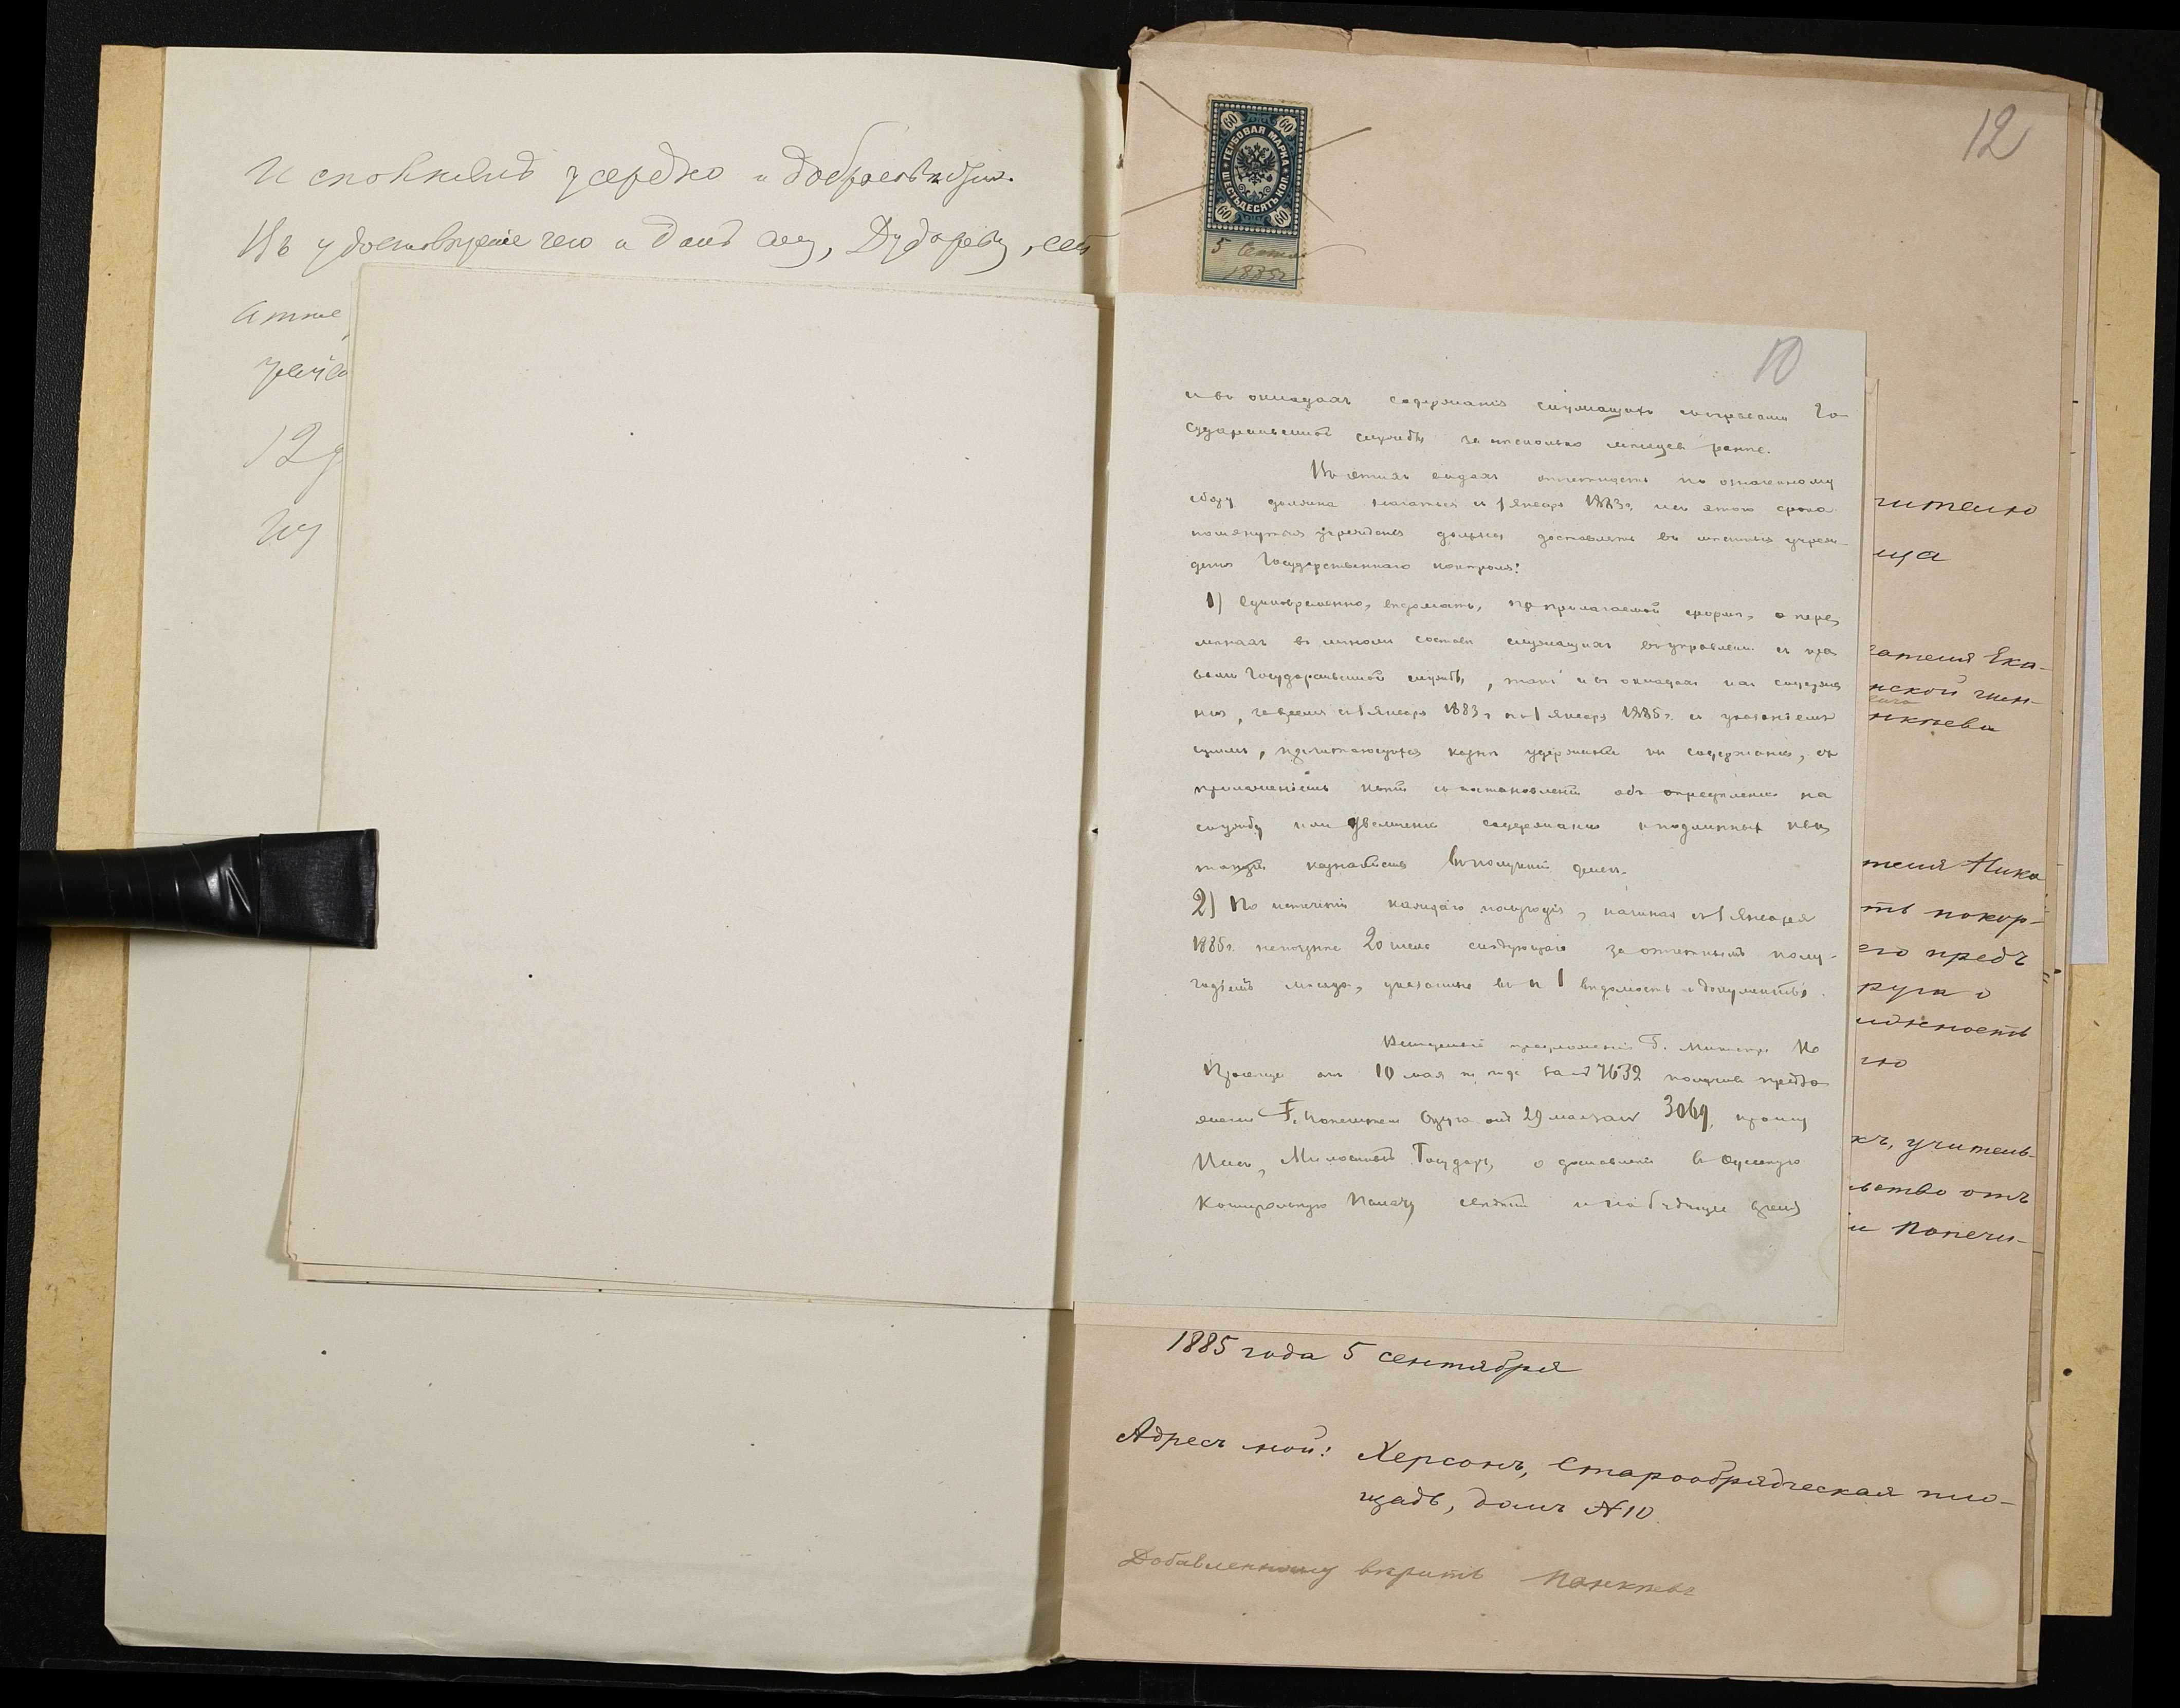 исполнялъ усердно и добросовѣстно.
Въ удостовѣреніе чего и данъ ему, Дудареву, сей
атте
12
12
60 60
ГЕРБОВАЯ МАРКА
ШЕСТЬДЕСЯТЪ КОП.
60 60
5 Сентя
1885г
10
и въ окладахъ содержанія служащихъ съ правами Го-
сударственной службы за нѣсколько мѣсяцевъ ранѣе.
Въ этихъ видахъ отчетность по означенному
сбору должна начаться съ 1 Января 1883г. и съ этого срока
помянутыя учрежденія должны доставлять въ мѣстныя учреж-
денія Государственнаго контроля:
1) Единовременно, вѣдомость, по прилагаемой формѣ, о пере
мѣнахъ въ личномъ составѣ служащихъ въ управленіи съ пра
вами Государственной службы, такъ и въ окладахъ ихъ содержа
нія, за время съ 1 Января 1883г. по 1 Января 1885г. съ указаніемъ
суммъ, причитающихся казнѣ удержанія изъ содержанія, съ
приложеніемъ копій съ постановленій объ опредѣленіи на
службу или увеличеніи содержанія и подлинныхъ кви
танцій казначействъ въ полученіи денегъ.
2) По истеченіи каждаго полугодія, начиная съ 1 Января
1885г. не позднѣе 20 числа слѣдующаго за отчетнымъ полу-
годіемъ мѣсяца, указанные въ п 1 вѣдомость и документы.
предложенія Г. Министра На
Просвѣщ отъ 10 мая за № 7632
Г. Попечителя Округа отъ 29 мая за № 3069, прошу
Васъ, Милостивый Государь, о доставленіи въ Одесскую
Контрольную Палату свѣдѣній и на будущее время
чителю
ща
вателя Ека-
нской гим-
нкѣева
теля Нико
ть покор-
его предъ
руга о
лжность
ію
къ, учитель-
ьство отъ
и Попечи-
1885 года 5 сентября
Адресъ мой: Херсонъ, Старообрядческая пло-
щадь, домъ №10.
Добавленному вѣрить Панкѣевъ